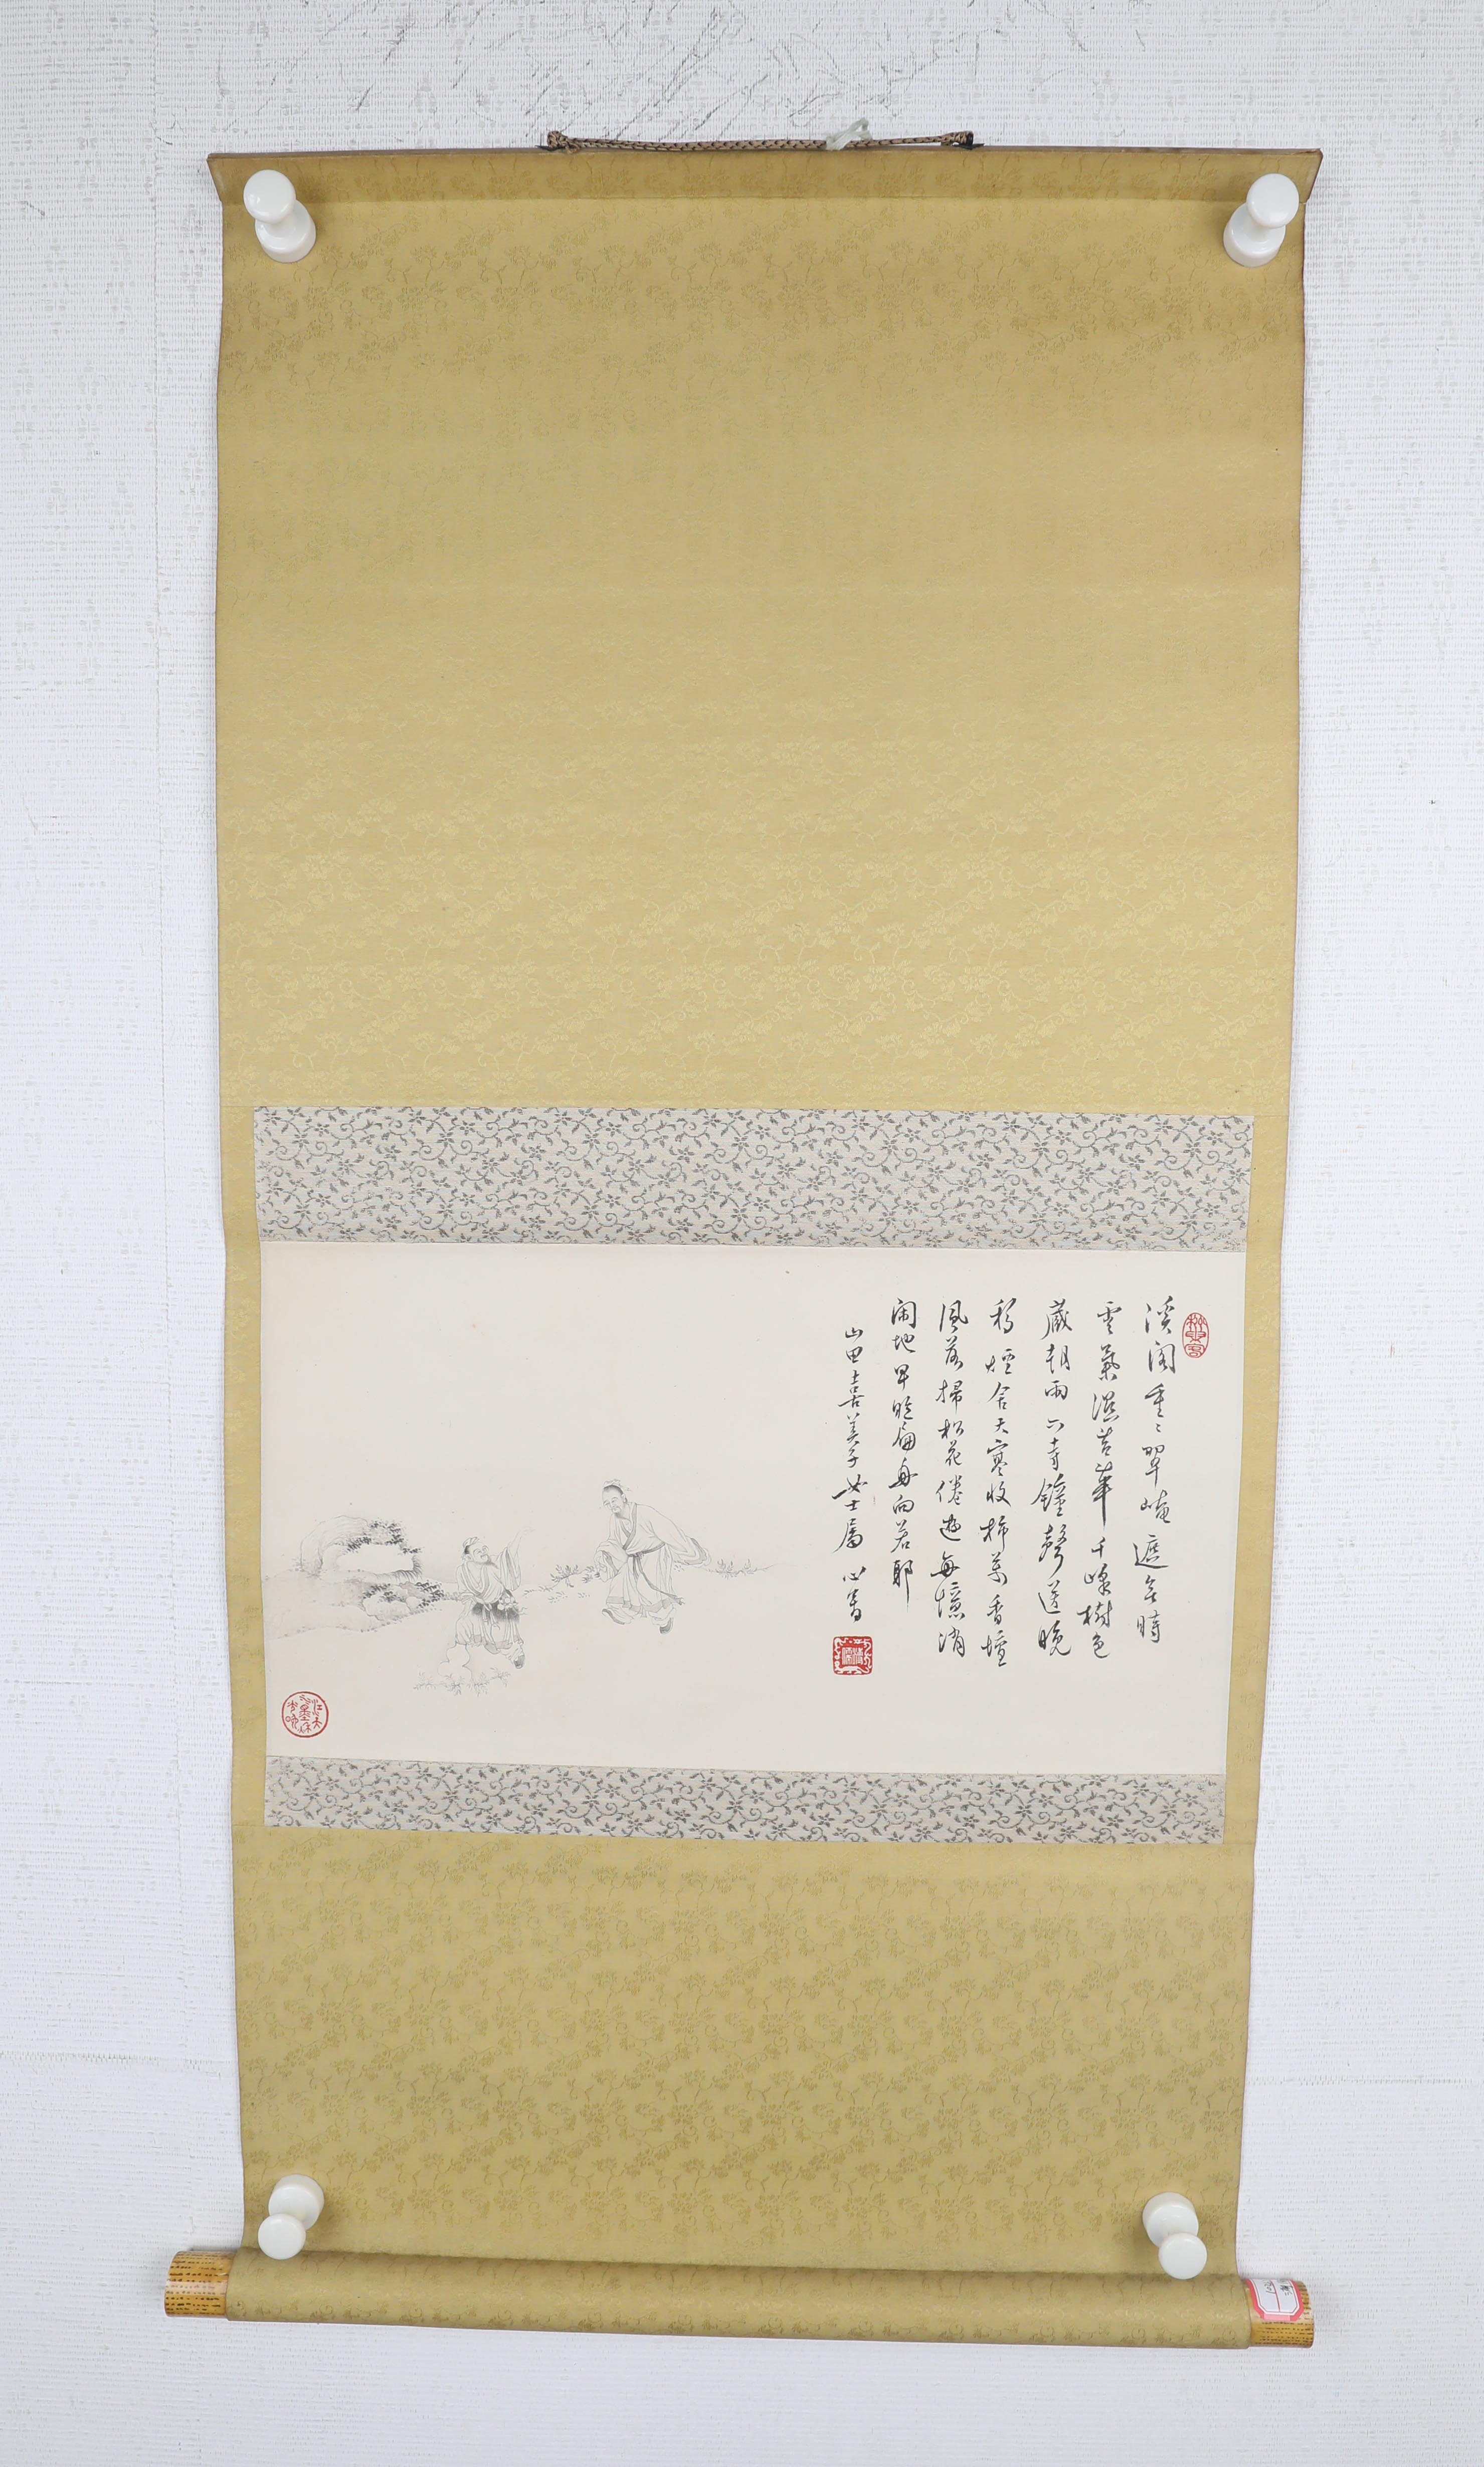 溪閣重〻翠嶂遮無時
雲氣濕苔華千峰樹色
藏朝雨六寺鐘聲送晚
天寒收柿葉香壇
風落掃松花倦遊每憶消
閑地早晚扁舟向若耶
山田喜美子女士屬 心畬